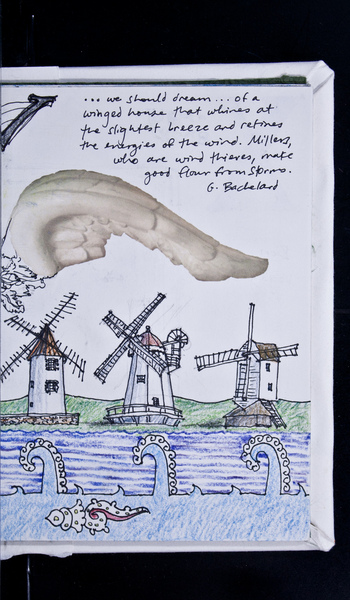 ... we should dream ... of a
winged house that whines at
the slightest breeze and refines
the energies of the wind. Millers,
who are wind thieves, make
good flour from storms.
G. Bachelard